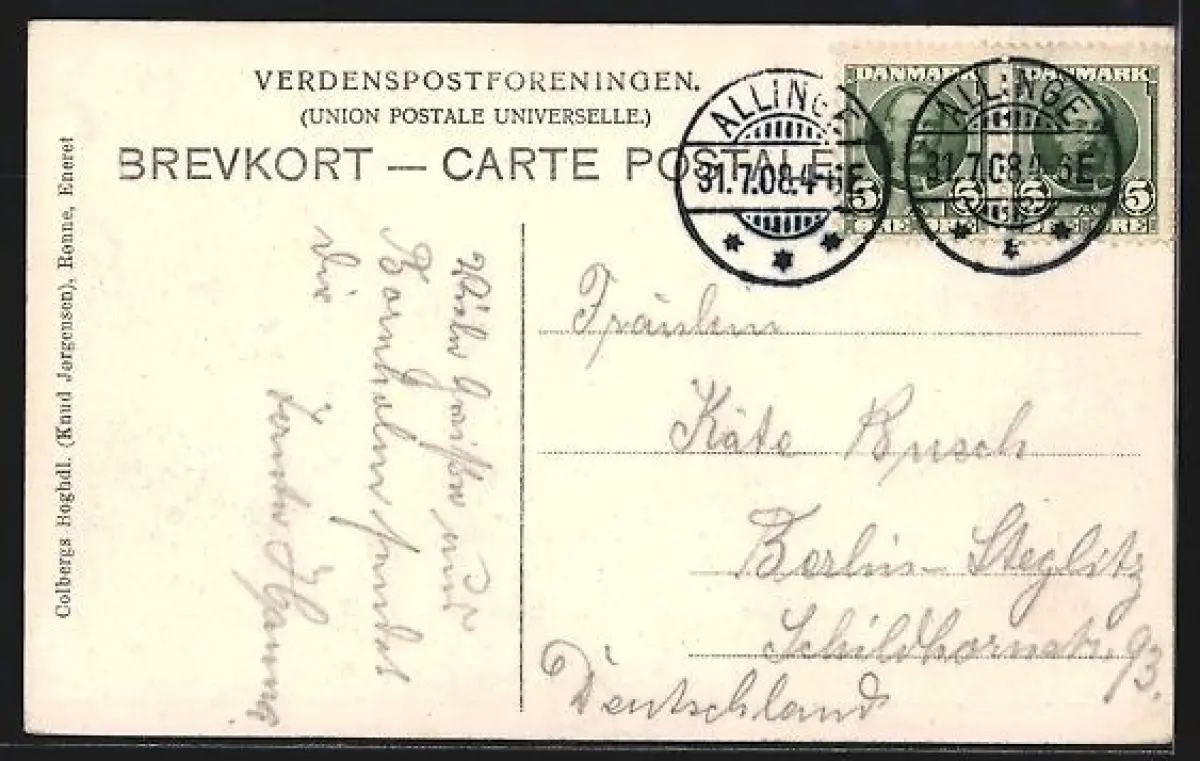 VERDENSPOSTFORENINGEN.
(UNION POSTALE UNIVERSELLE.)
BREVKORT — CARTE POSTALE
ALLINGE
31.7.08.4-6E
ALLINGE
31.7.08.4-6E
DANMARK
5 5
ØRE ØRE
DANMARK
5 5
ØRE ØRE
Colbergs Boghdl. (Knud Jørgensen), Rønne, Eneret
Viele Grüße aus
Bornholm sendet
Dir
Fräulein
Käte Busch
Berlin-Steglitz
Schildhornstr. 93.
Deutschland